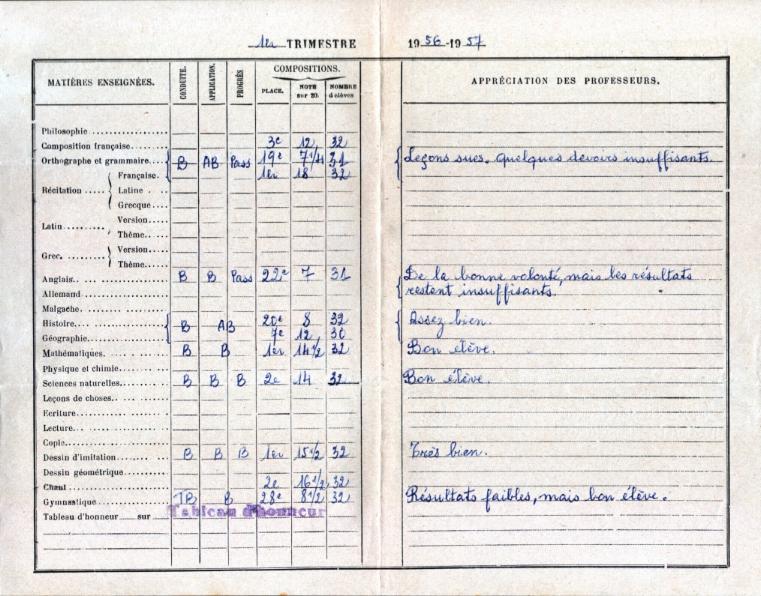 1er TRIMESTRE 1956-1957
MATIÈRES ENSEIGNÉES. CONDUITE. APPLICATION. PROGRÈS COMPOSITIONS. APPRÉCIATION DES PROFESSEURS.
PLACE. NOTE sur 20. NOMBRE d'élèves
Philosophie
Composition française 3e 12 32
Orthographe et grammaire B AB Pass 19e 7 1/4 31 Leçons sues. Quelques devoirs insuffisants.
Récitation Française. 1er 18 32
Latine
Grecque
Latin Version
Thème
Grec. Version
Thème
Anglais B B Pass 22e 7 31 De la bonne volonté, mais les résultats
restent insuffisants.
Allemand
Malgache
Histoire B AB 20e 8 32 Assez bien.
Géographie 7e 12 30
Mathématiques B B 1er 14 1/2 32 Bon élève.
Physique et chimie
Sciences naturelles B B B 2e 14 32 Bon élève.
Leçons de choses
Ecriture
Lecture
Copie
Dessin d'imitation B B B 1er 15 1/2 32 Très bien.
Dessin géométrique
Chant 2e 16 1/2 32
Gymnastique TB B 28e 8 1/2 32 Résultats faibles, mais bon élève.
Tableau d'honneur sur Tableau d'honneur